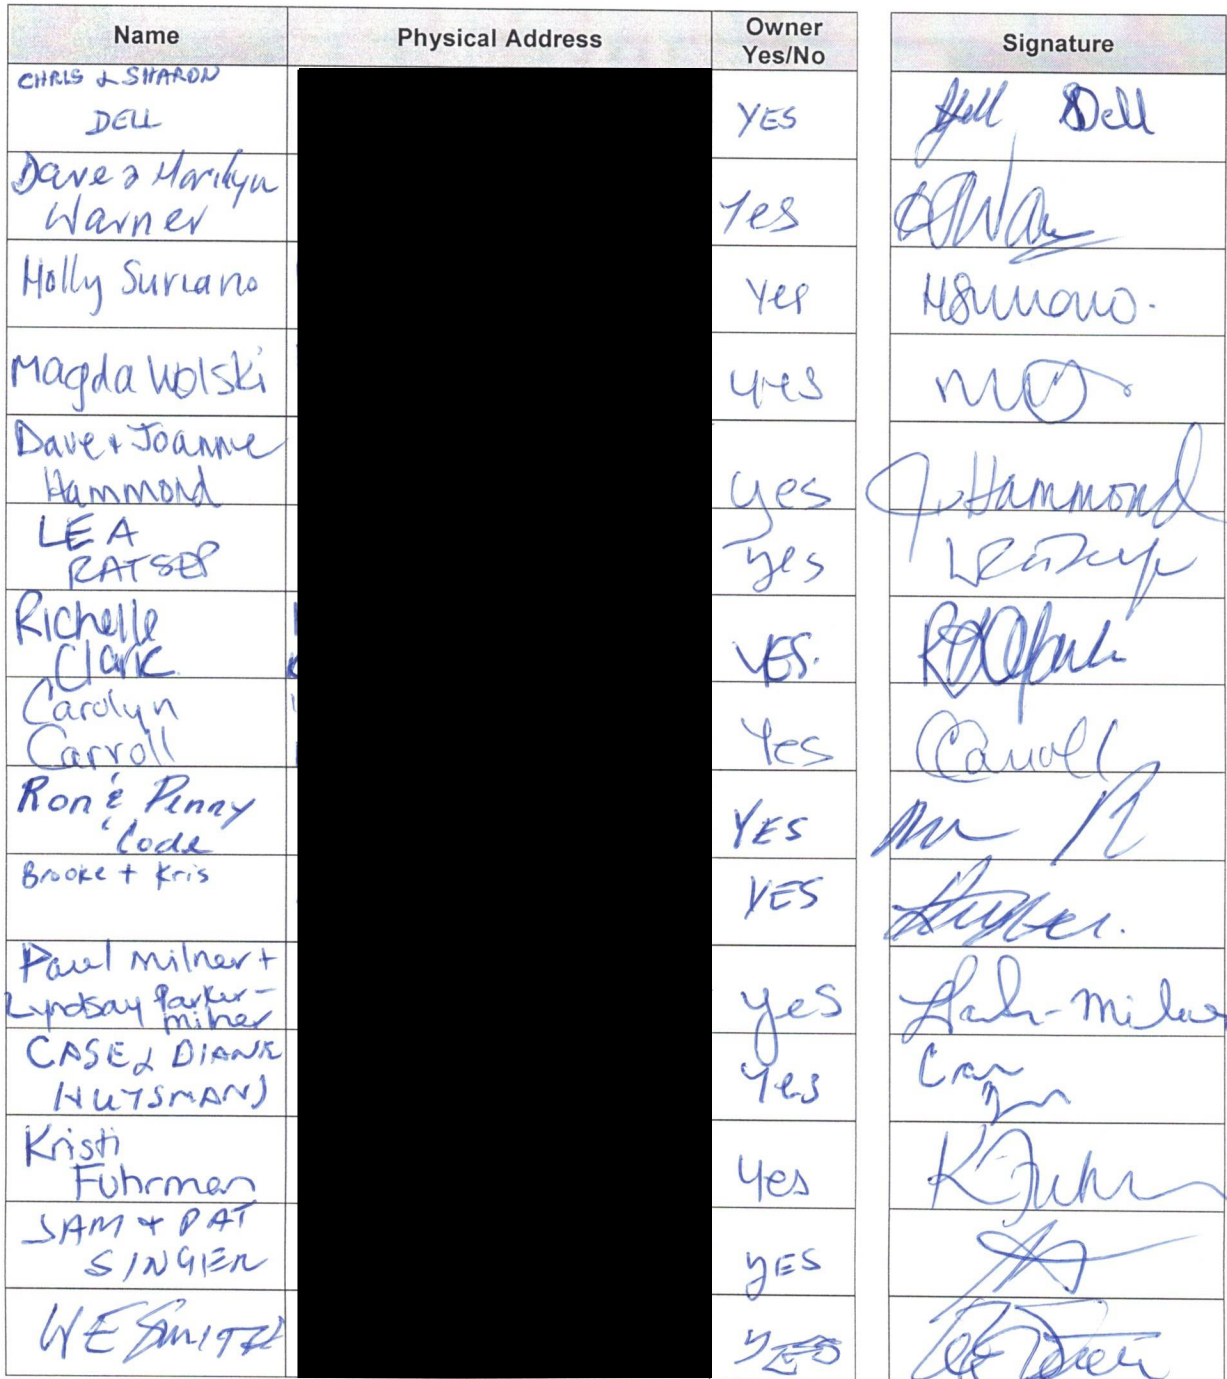 Name Physical Address Owner Yes/No Signature
CHRIS & SHARON
DELL YES Dell
Dave & Marilyn
Warner Yes
Holly Suriano Yes HSuriano.
Magda Wolski yes
Dave + Joanne
Hammond yes J. Hammond
LEA
RATSEP yes
Richelle
Clark YES.
Carolyn
Carroll Yes CCarroll
Ron & Penny
Code YES
Brooke + Kris YES
Paul Milner +
Lyndsay Parker-
milner yes
CASE & DIANE
HUYSMANS Yes
Kristi
Fuhrman Yes K Fuhr
SAM + PAT
SINGER YES
WE SMITH YES